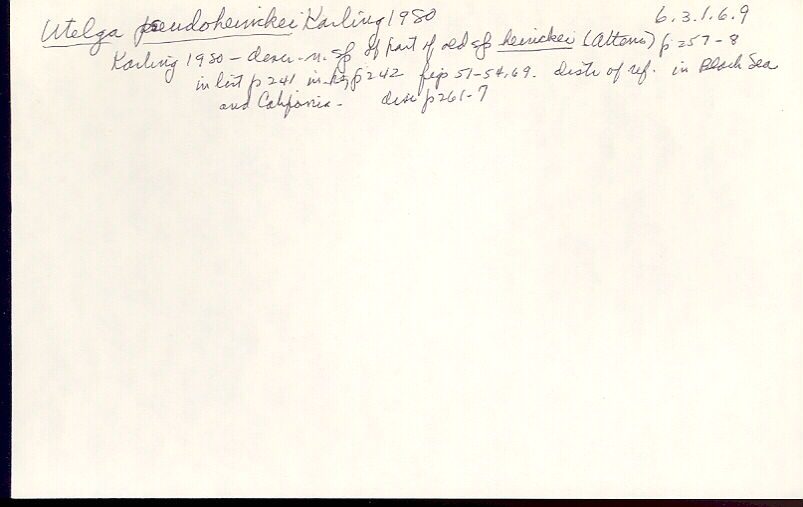 Utelga pseudoheinckei Karling 1980 6.3.1.6.9
Karling 1980 - descr. n. sp of part of old sp heinckei (Attems) p 257-8
in list p 241 in key p 242 figs 51-54, 69. distr of ref. in Black Sea
and California. disc p 261-7